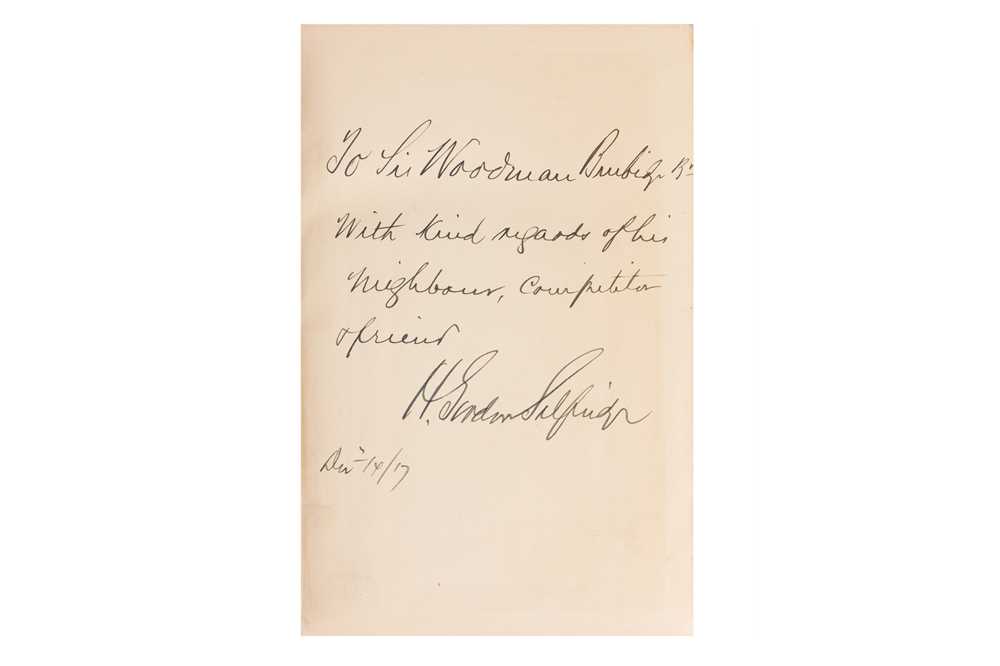 To Sir Woodman Burbidge Bt
With kind regards of his
neighbour, competitor
& friend
H. Gordon Selfridge
Decr 14/17